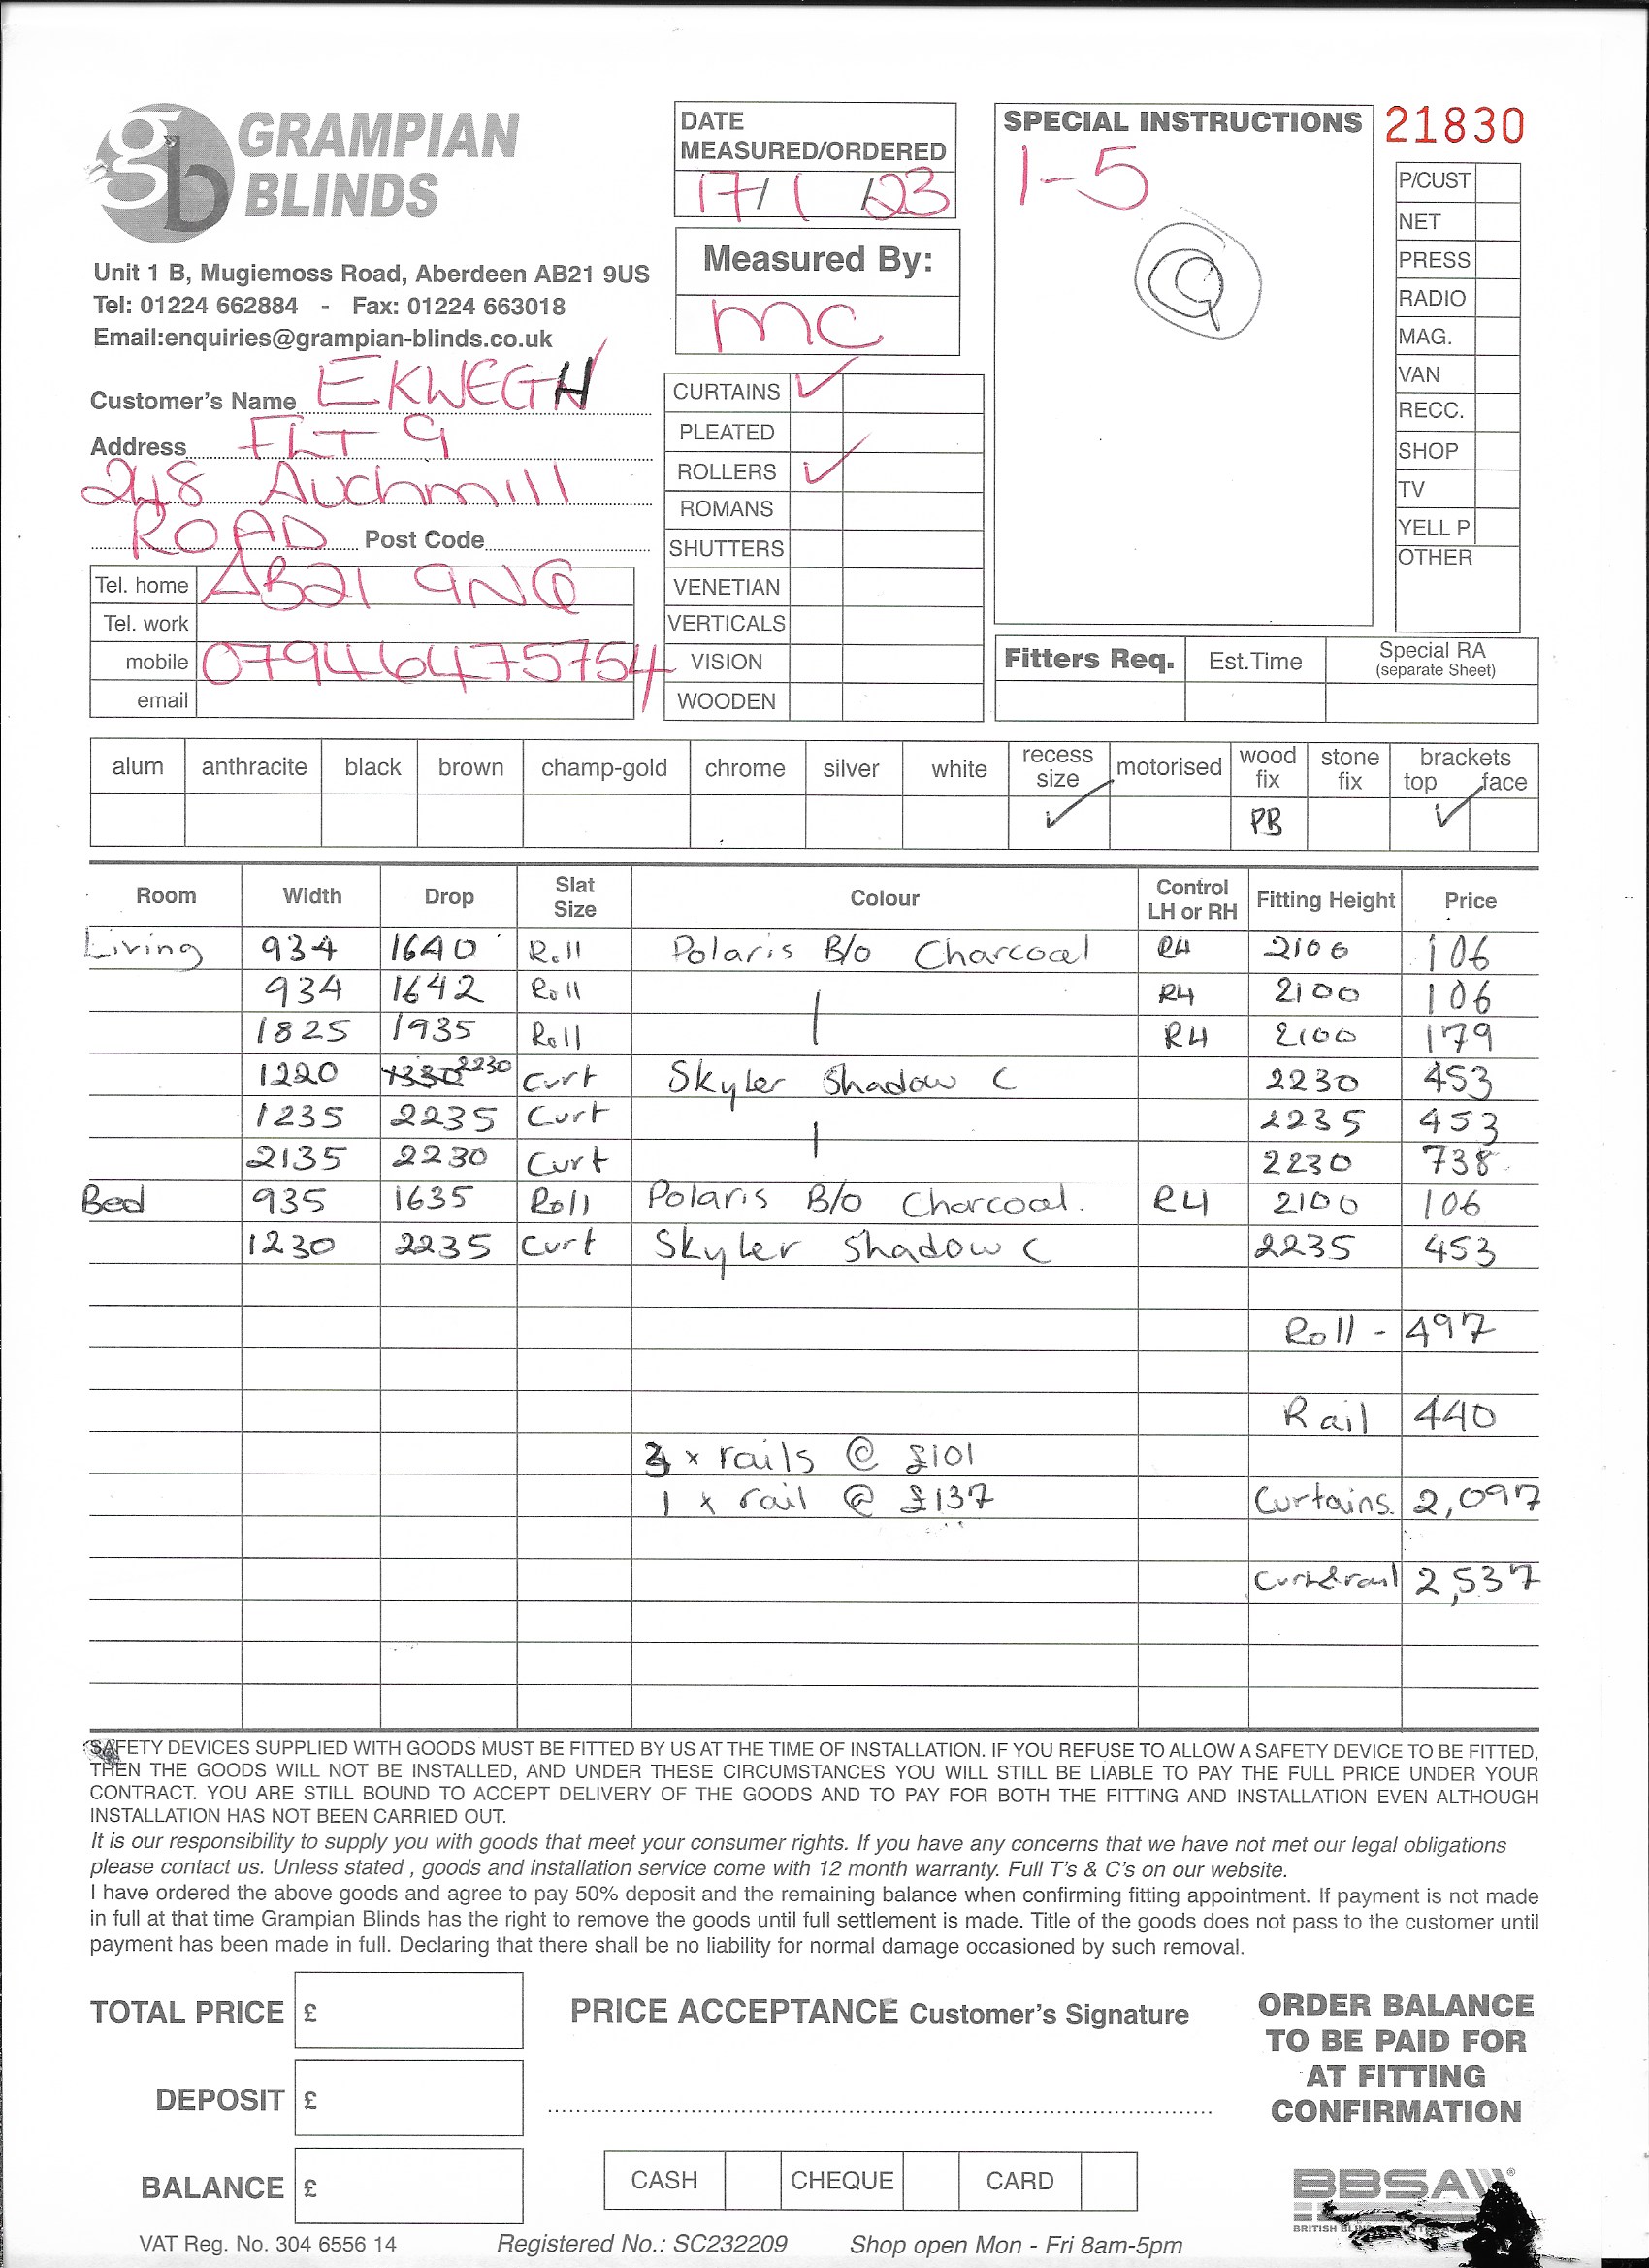 GRAMPIAN
BLINDS
Unit 1 B, Mugiemoss Road, Aberdeen AB21 9US
Tel: 01224 662884 - Fax: 01224 663018
Email:enquiries@grampian-blinds.co.uk
Customer's Name EKWEGH
Address FLT 9
248 Auchmill
ROAD Post Code
Tel. home AB21 9NQ
Tel. work
mobile 07946475754
email
DATE
MEASURED/ORDERED
17/1/23
Measured By:
MC
CURTAINS ✓
PLEATED
ROLLERS ✓
ROMANS
SHUTTERS
VENETIAN
VERTICALS
VISION
WOODEN
SPECIAL INSTRUCTIONS
1-5
Q
21830
P/CUST
NET
PRESS
RADIO
MAG.
VAN
RECC.
SHOP
TV
YELL P
OTHER
Fitters Req. Est.Time Special RA
(separate Sheet)
alum anthracite black brown champ-gold chrome silver white recess size motorised wood fix stone fix brackets top face
✓ PB ✓
Room Width Drop Slat Size Colour Control LH or RH Fitting Height Price
Living 934 1640 Roll Polaris B/o Charcoal RH 2100 106
934 1642 Roll | RH 2100 106
1825 1935 Roll RH 2100 179
1220 1330 2230 Curt Skyler Shadow C 2230 453
1235 2235 Curt | 2235 453
2135 2230 Curt 2230 738
Bed 935 1635 Roll Polaris B/o Charcoal. RH 2100 106
1230 2235 Curt Skyler Shadow C 2235 453
Roll - 497
Rail 440
3 x rails @ £101
1 x rail @ £137 Curtains. 2,097
Curt&rail 2,537
SAFETY DEVICES SUPPLIED WITH GOODS MUST BE FITTED BY US AT THE TIME OF INSTALLATION. IF YOU REFUSE TO ALLOW A SAFETY DEVICE TO BE FITTED,
THEN THE GOODS WILL NOT BE INSTALLED, AND UNDER THESE CIRCUMSTANCES YOU WILL STILL BE LIABLE TO PAY THE FULL PRICE UNDER YOUR
CONTRACT. YOU ARE STILL BOUND TO ACCEPT DELIVERY OF THE GOODS AND TO PAY FOR BOTH THE FITTING AND INSTALLATION EVEN ALTHOUGH
INSTALLATION HAS NOT BEEN CARRIED OUT.
It is our responsibility to supply you with goods that meet your consumer rights. If you have any concerns that we have not met our legal obligations
please contact us. Unless stated , goods and installation service come with 12 month warranty. Full T's & C's on our website.
I have ordered the above goods and agree to pay 50% deposit and the remaining balance when confirming fitting appointment. If payment is not made
in full at that time Grampian Blinds has the right to remove the goods until full settlement is made. Title of the goods does not pass to the customer until
payment has been made in full. Declaring that there shall be no liability for normal damage occasioned by such removal.
TOTAL PRICE £
DEPOSIT £
BALANCE £
PRICE ACCEPTANCE Customer's Signature
CASH CHEQUE CARD
ORDER BALANCE
TO BE PAID FOR
AT FITTING
CONFIRMATION
BBSA
BRITISH
VAT Reg. No. 304 6556 14 Registered No.: SC232209 Shop open Mon - Fri 8am-5pm